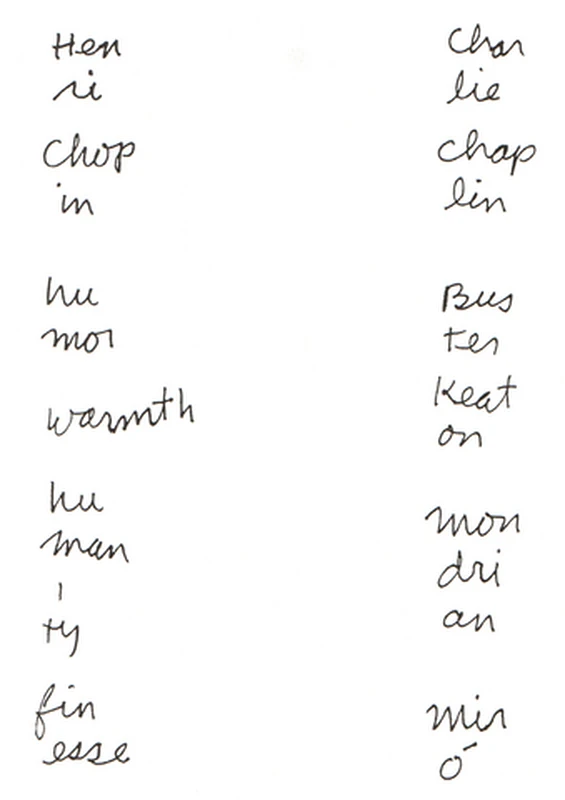 Hen
ri
Chop
in
hu
mor
warmth
hu
man
i
ty
fin
esse
Char
lie
Chap
lin
Bus
ter
Keat
on
mon
dri
an
mir
ó